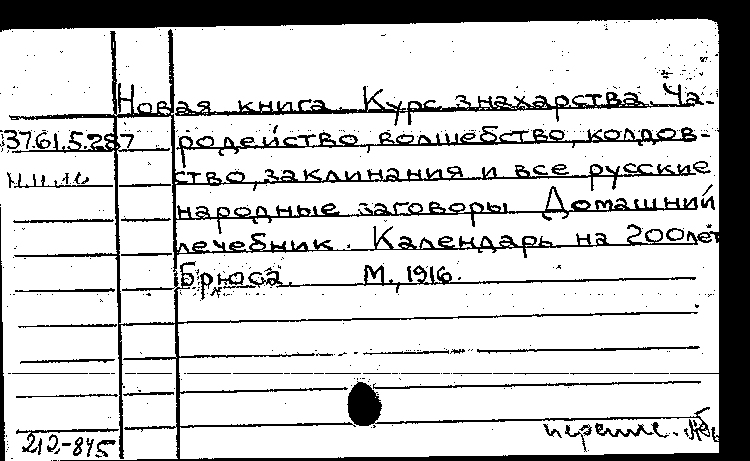 Новая книга. Курс знахарства. Ча-
37.61.5.287 родейство, волшебство, колдов-
ство, заклинания и все русские
народные заговоры Домашний
лечебник. Календарь на 200 лет
Брюса. М., 1916.
212-845